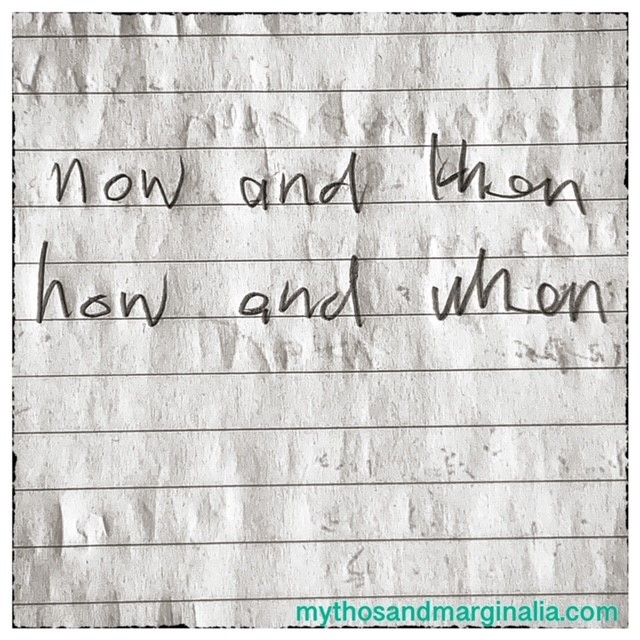 now and then
how and when
mythosandmarginalia.com